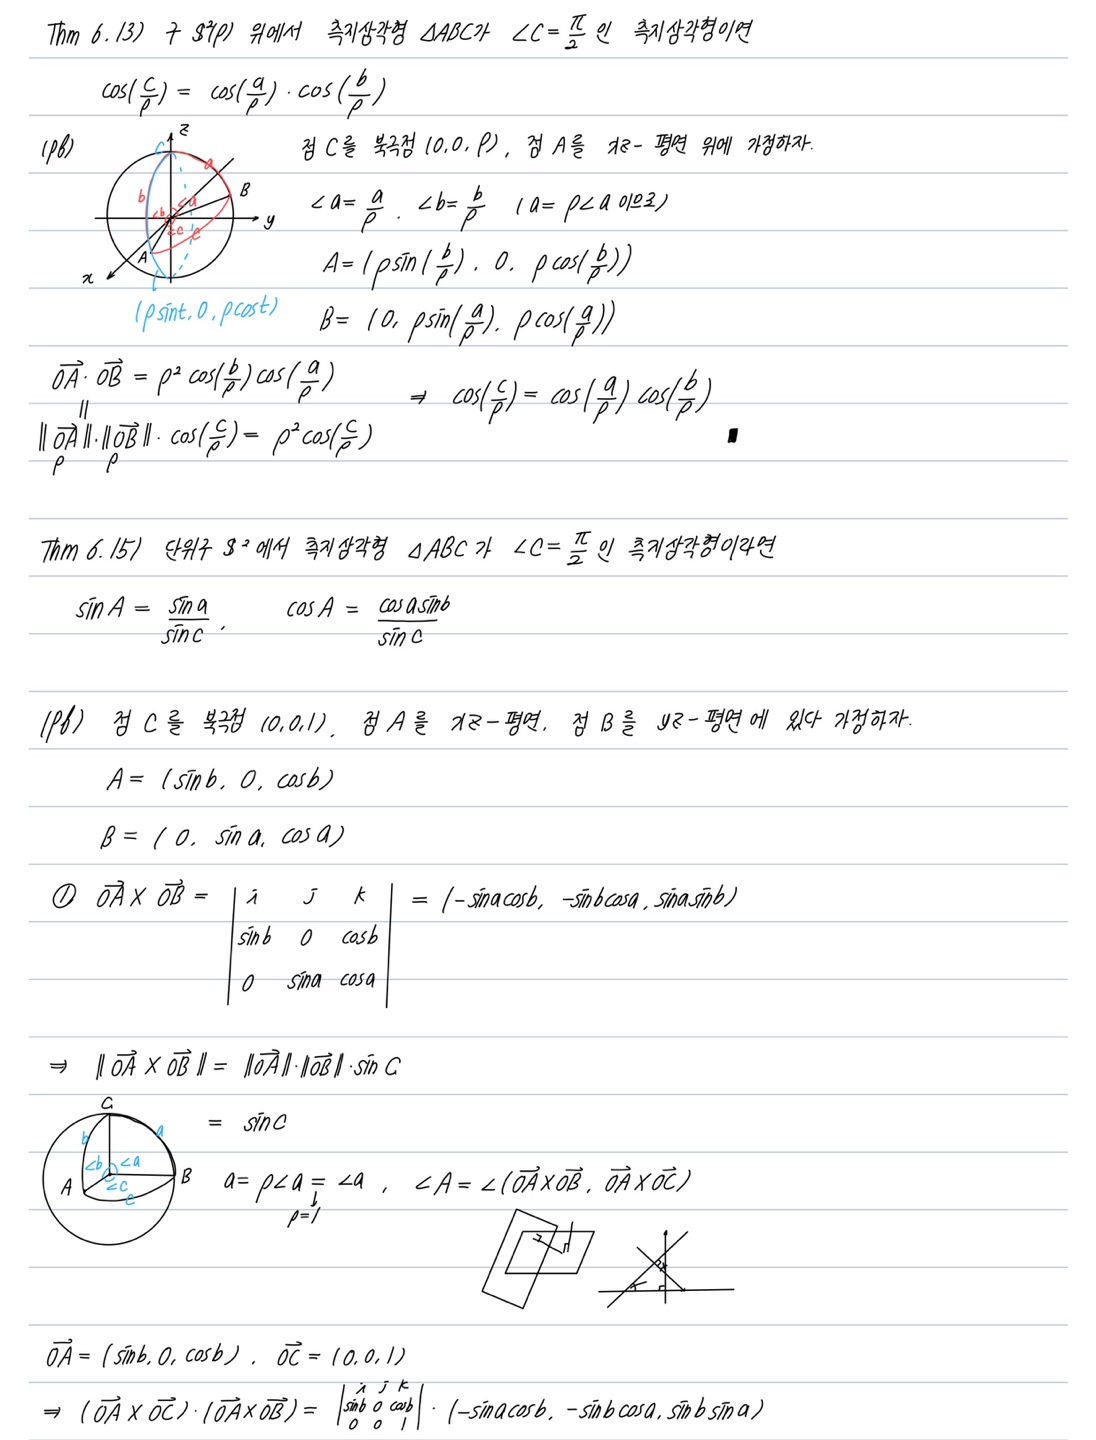 Thm 6.13) 구 S²(ρ) 위에서 측지삼각형 △ABC가 ∠C = π/2 인 측지삼각형이면
cos(c/ρ) = cos(a/ρ) · cos(b/ρ)
(pf)
점 C를 북극점 (0,0,ρ), 점 A를 xz-평면 위에 가정하자.
z
C
a
b
B
∠a
∠b
∠c
c
y
A
x
(ρsint, 0, ρcost)
∠a = a/ρ . ∠b = b/ρ (a = ρ∠a 이므로)
A = (ρsin(b/ρ), 0, ρcos(b/ρ))
B = (0, ρsin(a/ρ), ρcos(a/ρ))
OA · OB = ρ² cos(b/ρ) cos(a/ρ)
⇒ cos(c/ρ) = cos(a/ρ) cos(b/ρ)
||
‖OA‖·‖OB‖ · cos(c/ρ) = ρ² cos(c/ρ)
ρ ρ
■
Thm 6.15) 단위구 S²에서 측지삼각형 △ABC가 ∠C = π/2 인 측지삼각형이라면
sinA = sina/sinc , cosA = cosasinb/sinc
(pf) 점 C를 북극점 (0,0,1), 점 A를 xz-평면, 점 B를 yz-평면에 있다 가정하자.
A = (sinb, 0, cosb)
B = (0, sina, cosa)
① OA × OB = | i j k | = (-sinacosb, -sinbcosa, sinasinb)
sinb 0 cosb
0 sina cosa
⇒ ‖OA × OB‖ = ‖OA‖·‖OB‖·sin C
= sinC
C
b
a
∠b
∠a
A
B
∠c
c
a = ρ∠a = ∠a , ∠A = ∠(OA×OB, OA×OC)
↓
ρ=1
OA = (sinb, 0, cosb) . OC = (0,0,1)
⇒ (OA × OC) · (OA×OB) = | i j k | · (-sinacosb, -sinbcosa, sinbsina)
sinb 0 cosb
0 0 1